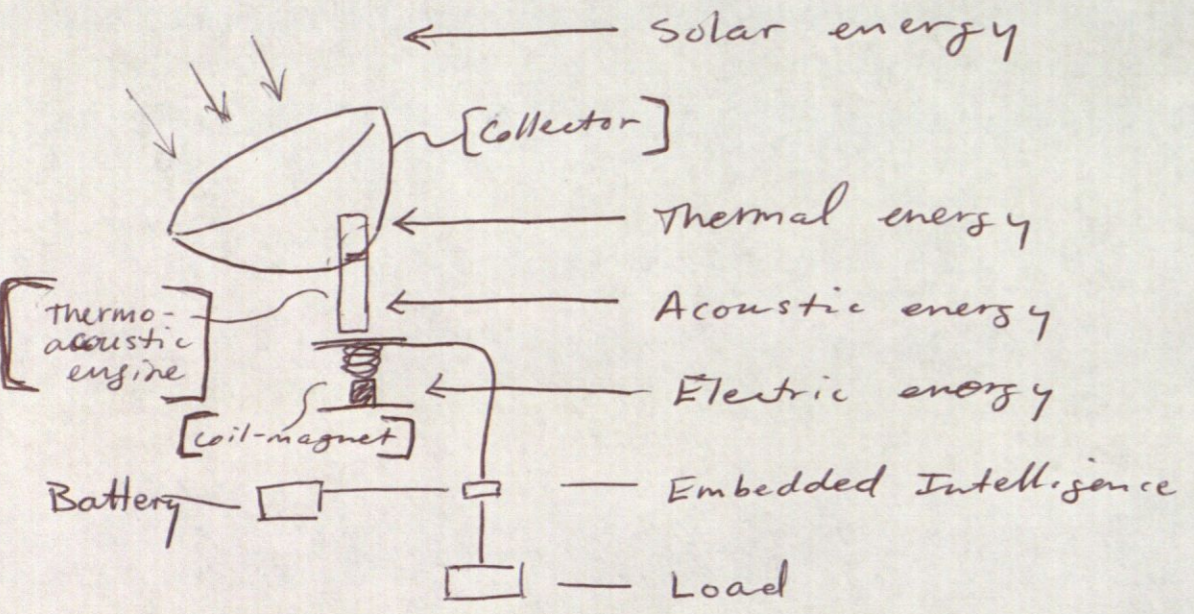 Solar energy
[Collector]
Thermal energy
[Thermo-
acoustic
engine]
Acoustic energy
Electric energy
[coil-magnet]
Battery
Embedded Intelligence
Load